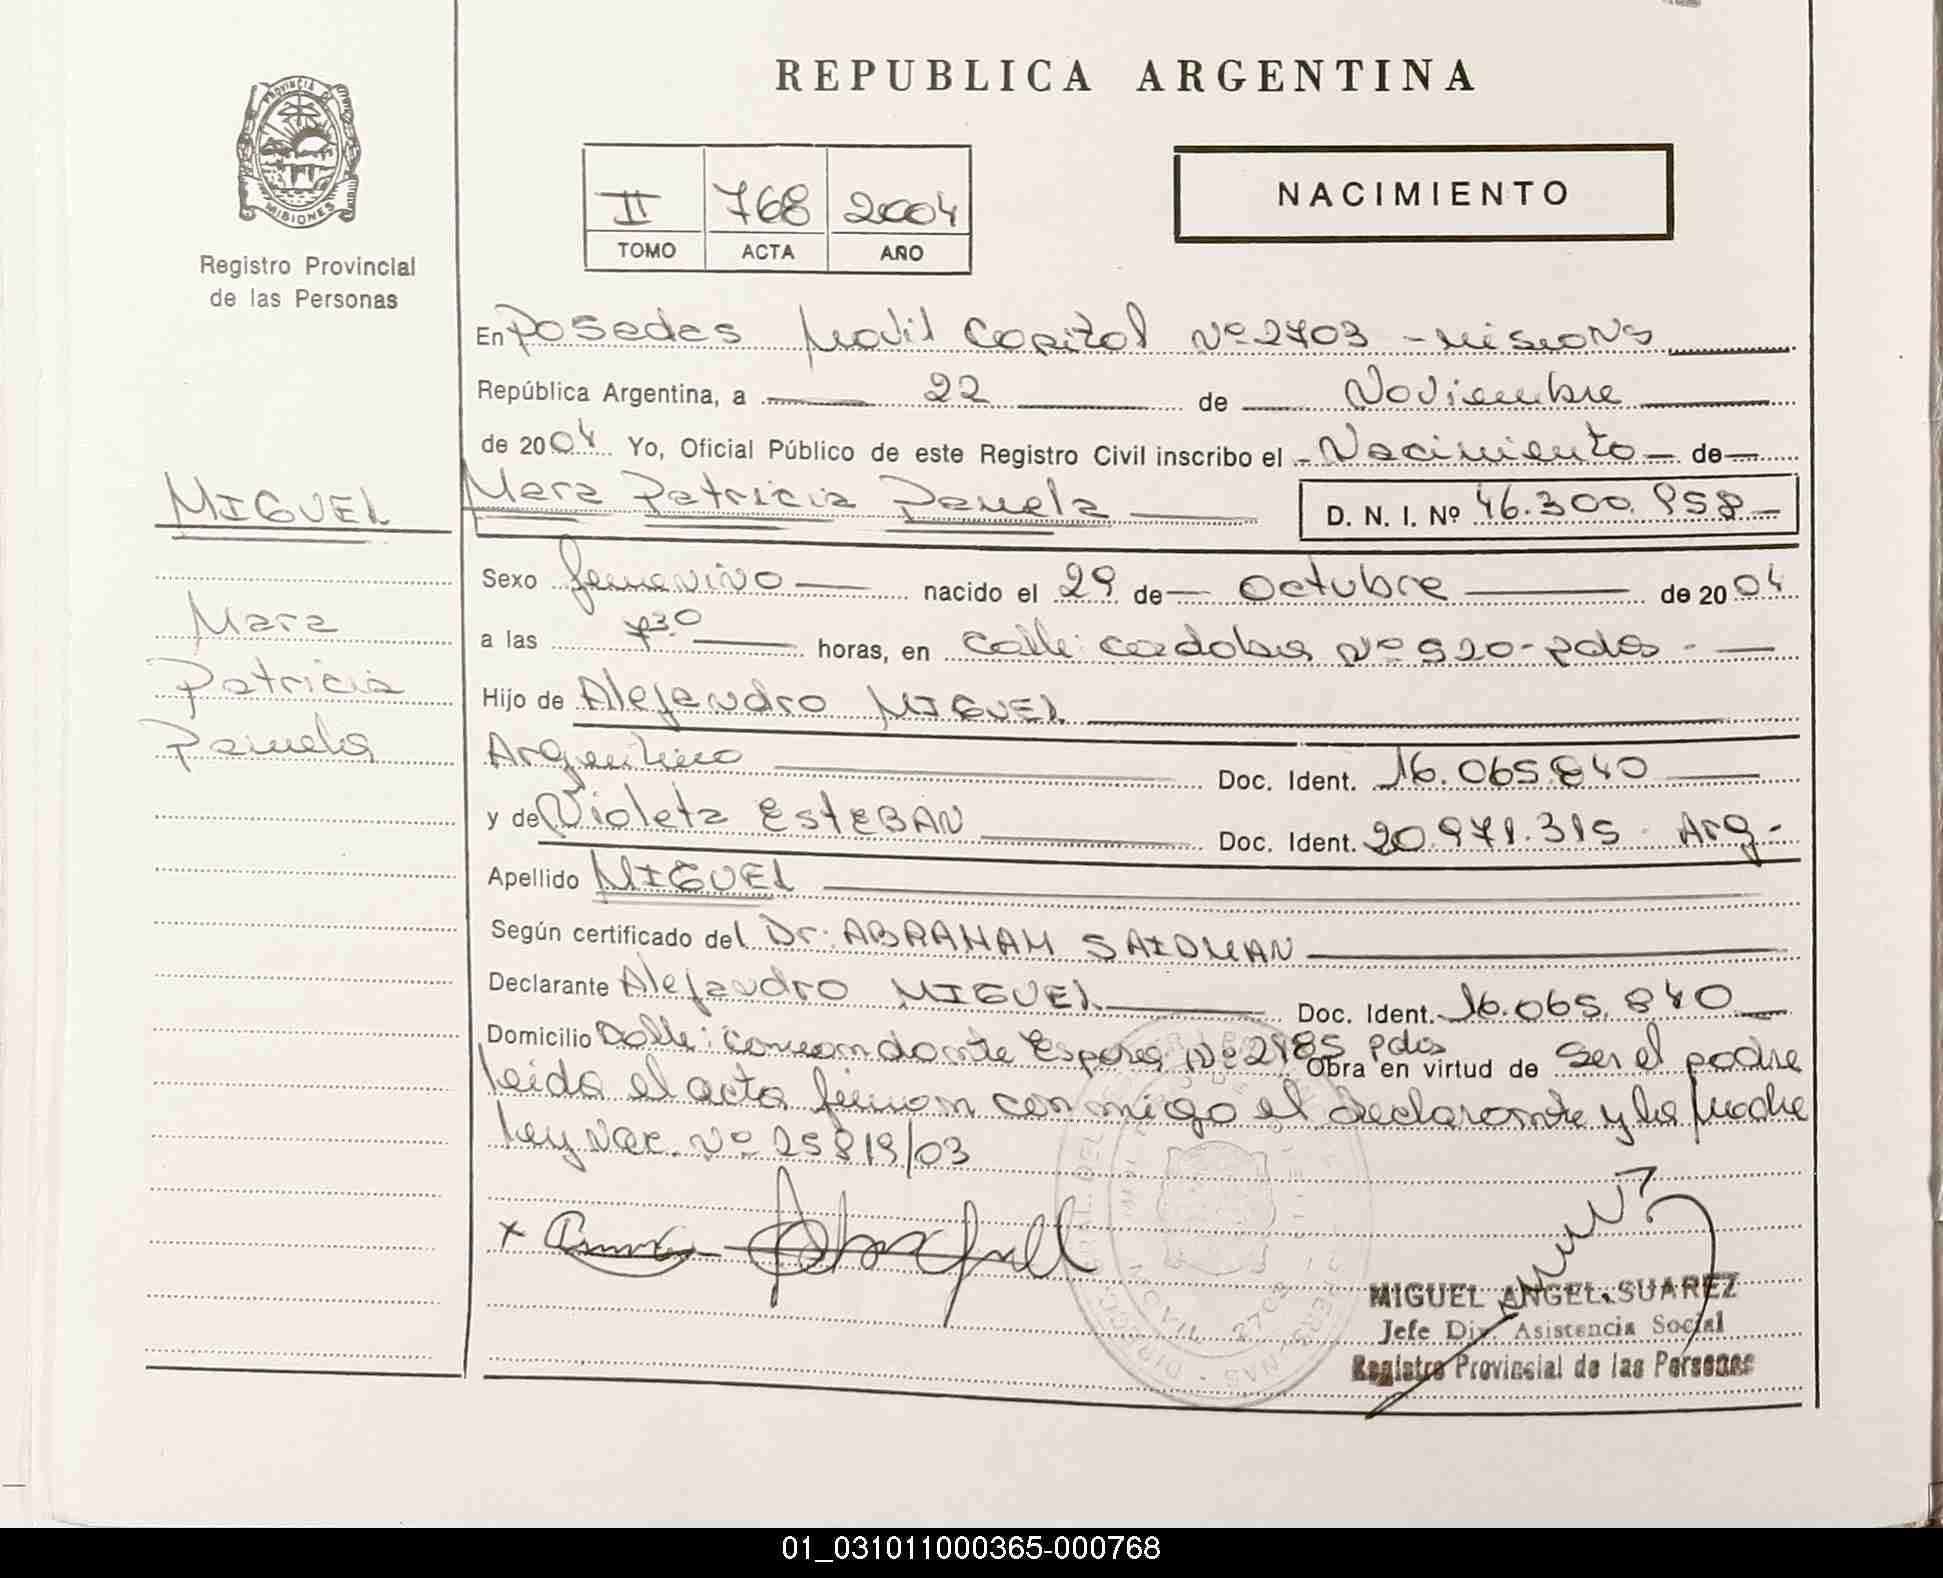 REPUBLICA ARGENTINA
PROVINCIA DE MISIONES
Registro Provincial
de las Personas
II 768 2004
TOMO ACTA AÑO
NACIMIENTO
En Posadas Movil Capital Nº 2703 - Misiones
República Argentina, a 22 de Noviembre
de 2004 Yo, Oficial Público de este Registro Civil inscribo el - Nacimiento - de
Mara Patricia Pamela D. N. I. Nº 46.300.958
Sexo femenino nacido el 29 de Octubre de 2004
a las 730 horas, en Calle: Cordoba Nº 920 - Pdas -
Hijo de Alejandro MIGUEL
Argentino Doc. Ident. 16.065.840
y de Violeta ESTEBAN Doc. Ident. 20.971.315 Arg-
Apellido MIGUEL
Según certificado del Dr: ABRAHAM SAIDMAN
Declarante Alejandro MIGUEL Doc. Ident. 16.065.840
Domicilio Calle: Comandante Espora Nº 2985 Pdas Obra en virtud de Ser el padre
Leida el acta firman conmigo el declarante y la Madre
Ley Nac. Nº 25819/03
MIGUEL
Mara
Patricia
Pamela
MOVIL 2703
MIGUEL ANGEL SUAREZ
Jefe Div. Asistencia Social
Registro Provincial de las Personas
01_031011000365-000768